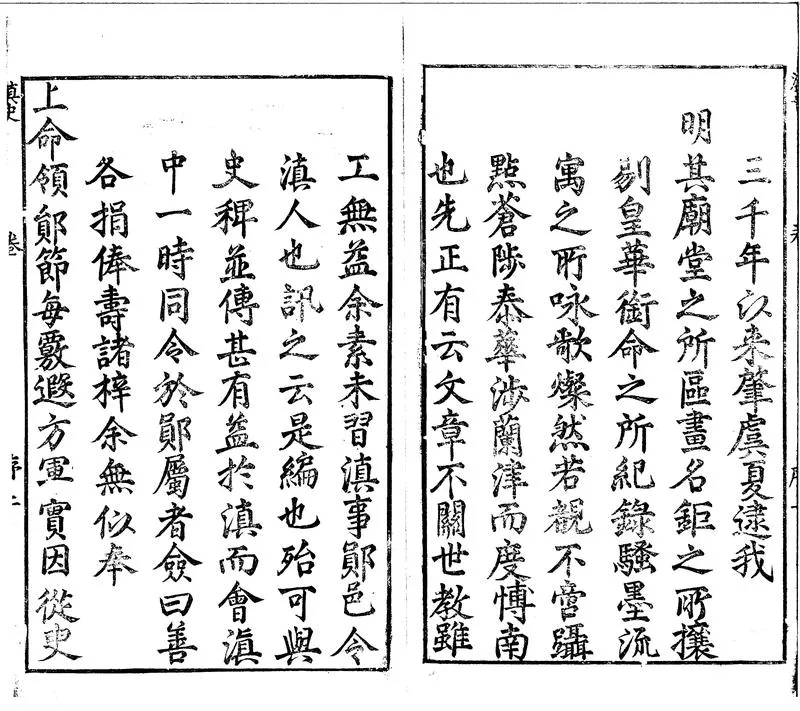 三千年以来肇虞夏逮我
明其廟堂之所區畫名鉅之所攘
剔皇華銜命之所紀錄騷墨流
寓之所咏歌燦然若覩不啻躡
點蒼陟泰華涉蘭津而度愽南
也先正有云文章不關世教雖
工無益余素未習滇事鄖邑令
滇人也訊之云是編也殆可與
史稗並傳甚有益於滇而會滇
中一時同令於鄖屬者僉曰善
各捐俸壽諸梓余無似奉
上命領鄖節每覈遐方軍實因從史
滇史
卷
序二